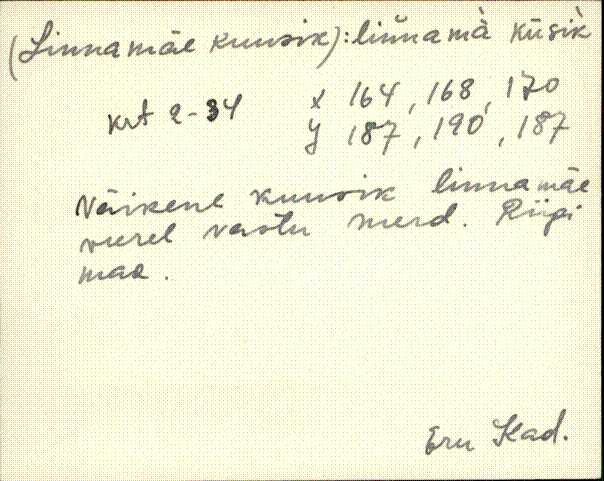 (Linnamäe kuusik): lin̆namä̀ kūsìk
krt 2-34 x 164, 168, 170
y 187, 190, 187
Näikene kuusik linnamäe
veerel vastu merd. Riigi
maa.
Eru Kad.